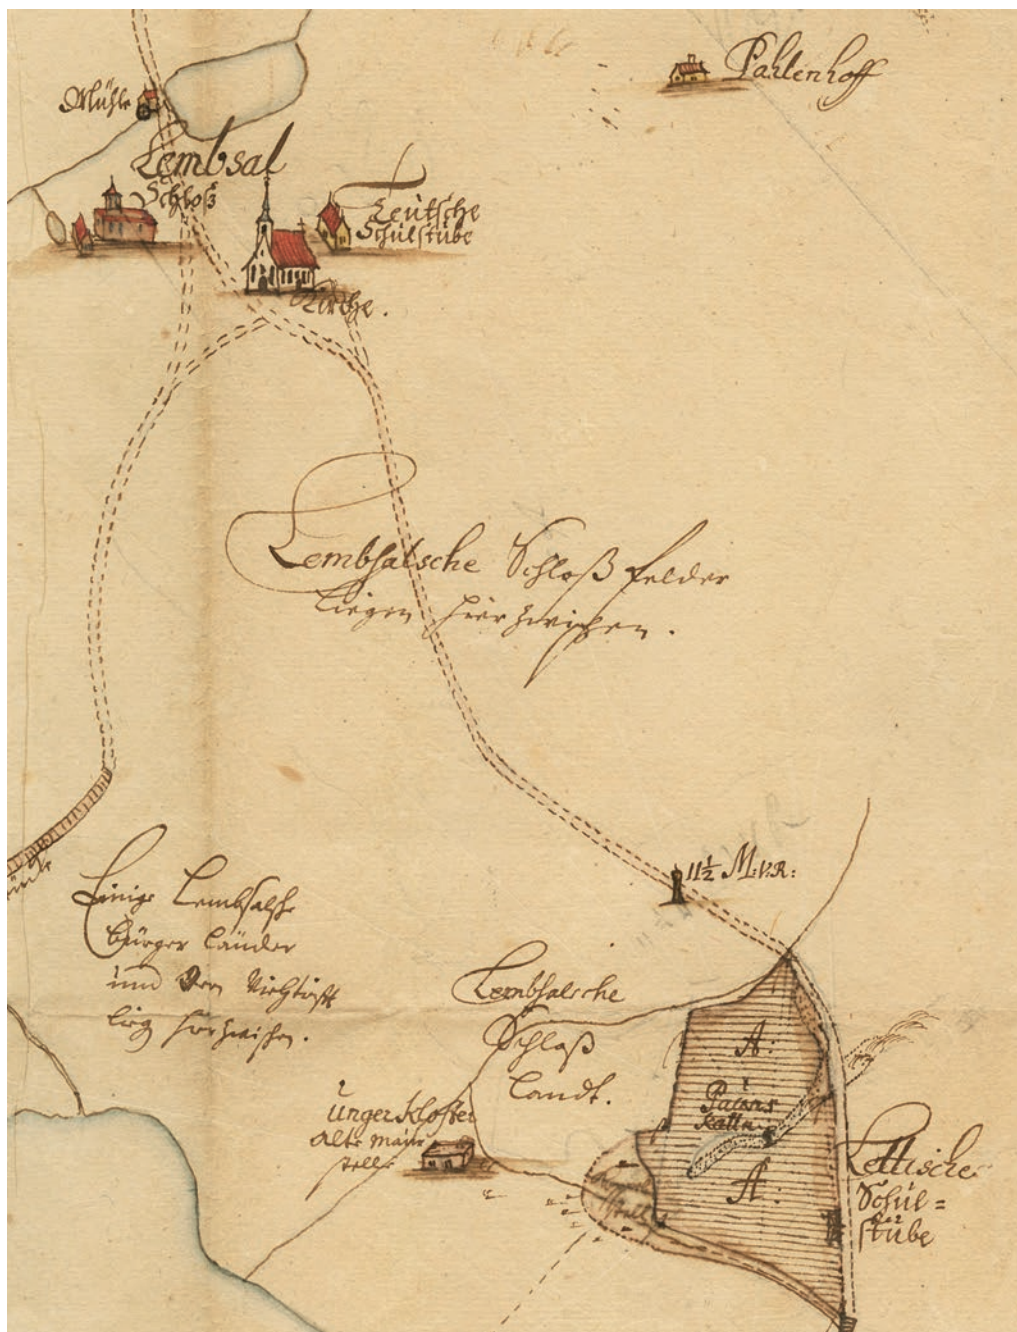 Pahlenhoff
Mühle
Lembsal
Schloß
Teutsche
Schulstube
Kirche.
Lembsalsche Schloß felder
liegen hier zwischen.
11½ M:V:R:
Einige Lembsalsche
bürger länder
und der
lieg hier zwischen.
Lembsalsche
Schloß
landt.
A:
Unger Kloster
alte
stelle
A:
Lettische
Schul=
stübe